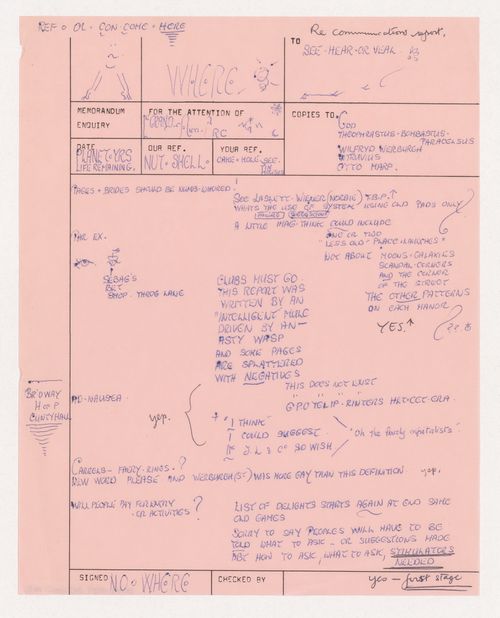 REF · OR · CON · COME · HERE
Re communications report,
TO
SEE · HEAR · OR VEAL
WHERE
MEMORANDUM
ENQUIRY
FOR THE ATTENTION OF
RC
COPIES TO:
GOD
THEOPHRASTUS · BOMBASTUS ·
PARACELSUS
WILFRYD WERBURGH
VITRUVIUS
OTTO MARP.
DATE
PLANET · YRS
LIFE REMAINING.
OUR REF.
NUT · SHELL
YOUR REF.
CAKE · HOLE
PAGES + BRIDES SHOULD BE NUMB-UNBORED.
SEE LABNETT · WIENER (NORBIE) T.B.P. ↑
WHATS THE USE OF SYSTEM USING OLD PADS ONLY
A LITTLE MAG · THINK COULD INCLUDE
ONE OR TWO
"LESS OLD · PLACE LAUNCHES"
NOT ABOUT MOONS · GALAXIES
SCANDAL · CORNERS
AND THE CORNER
OF THE STREET
THE OTHER PATTERNS
ON EACH MANOR
YES. ↑
??
FOR EX.
SEBAG'S
BET
SHOP · THROG LANE
CLUBS MUST GO
THIS REPORT WAS
WRITTEN BY AN
"INTELLIGENT MULE
DRIVEN BY AN —
ASTY WASP
AND SOME PAGES
ARE SPLATTERED
WITH NEGATIVES
THIS DOES NOT LUST
BRODWAY
H O P
CUNTYHALL
AD · NAUSEA
yep.
G·P.O TELIP · RINTERS HET · CET · ERA
+ "I THINK
I COULD SUGGEST
IF J.L & Co SO WISH
"Oh the lovely imperialists"
CAREERS — FAERY · RINGS · ?
NEW WORD PLEASE AND WERBURGH (ST) WAS MORE GAY THAN THIS DEFINITION yep.
WILL PEOPLE PAY FOR ENTRY
· OR ACTIVITIES ?
LIST OF DELIGHTS STARTS AGAIN AT END SAME
END GAMES
SORRY TO SAY PEOPLES WILL HAVE TO BE
TOLD WHAT TO ASK — OR SUGGESTIONS MADE
ABT HOW TO ASK, WHAT TO ASK, STIMULATORS
NEEDED
SIGNED NO · WHERE
CHECKED BY
yes — first stage